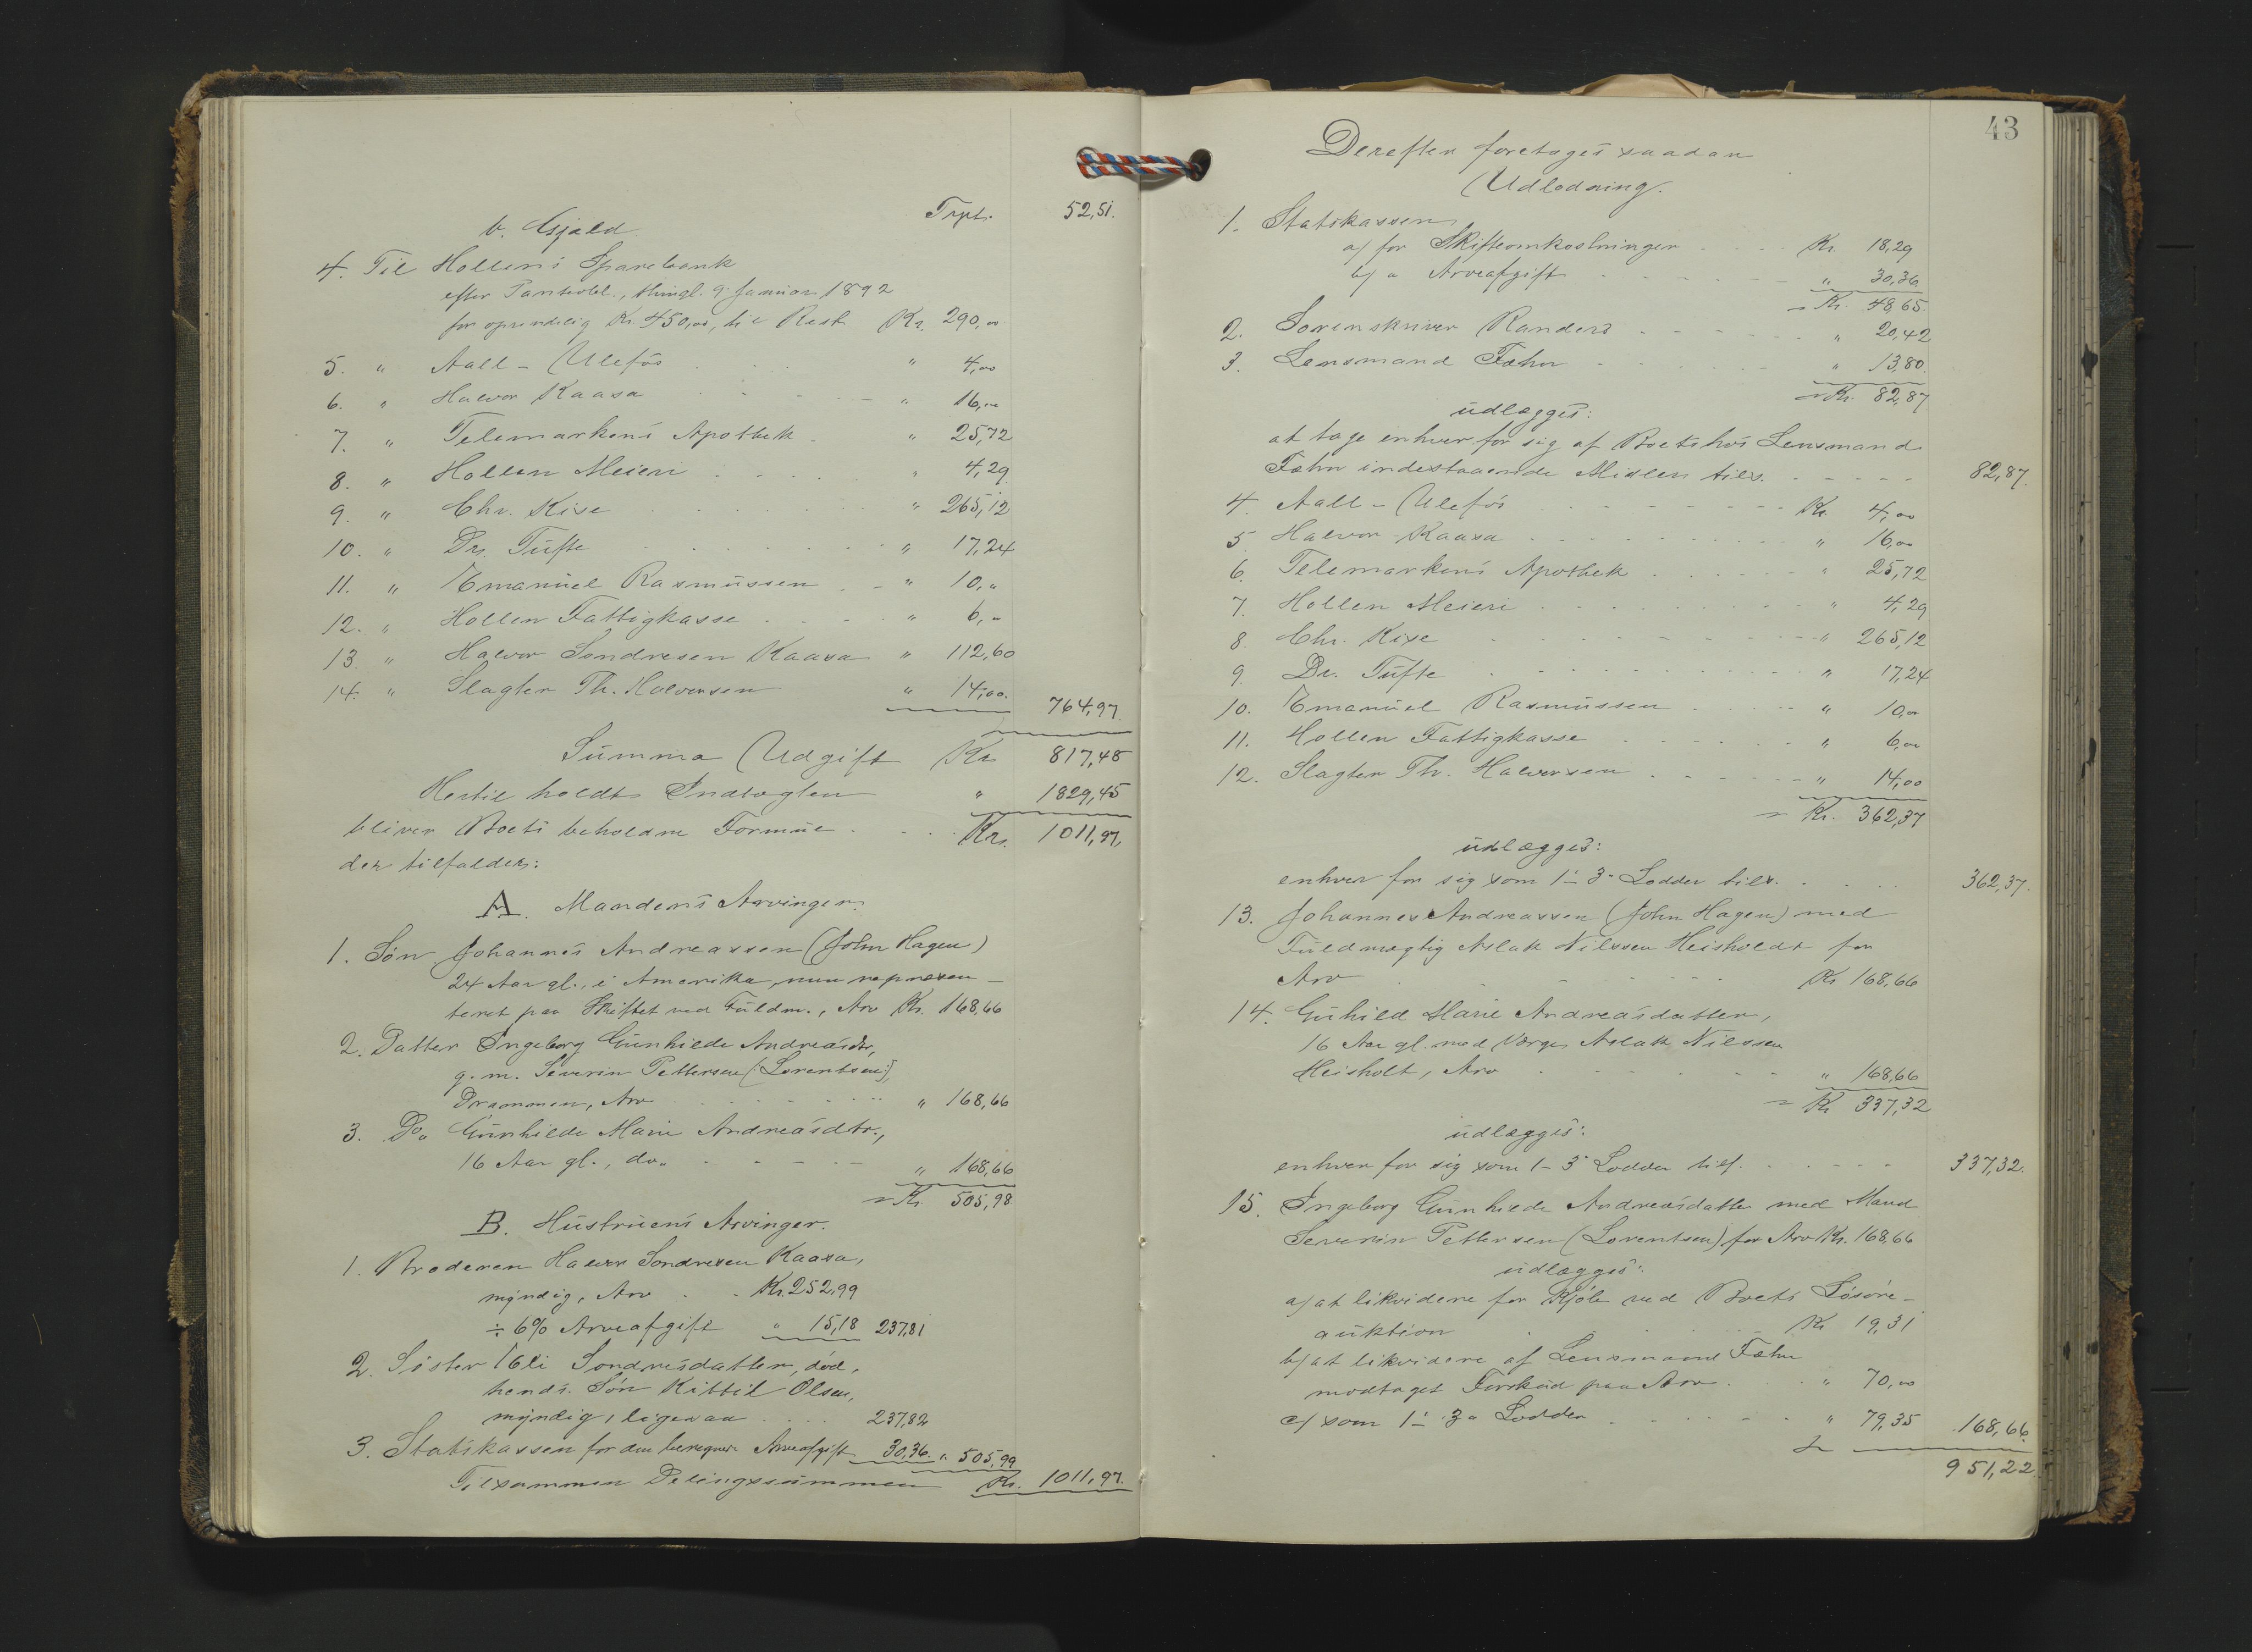 Trpt. 52,51.
b. Gjæld
4. Til Hollens Sparebank
efter Panteobl., thingl. 9 Januar 1892
for oprindelig Kr. 450,00, til Rest Kr. 290,00
5. " Aall - Ulefos " 4,00
6. " Halvor Kaasa " 16,00
7. " Telemarkens Apothek " 25,72
8. " Hollen Meieri " 4,29
9. " Chr. Kise " 265,12
10. " Dr. Tufte " 17,24
11. " Emanuel Rasmussen " 10,"
12. " Hollen Fattigkasse " 6,"
13. " Halvor Sondresen Kaasa " 112,60
14. " Slagter Th. Halvorsen " 14,00.
764,97
Summa Udgift Kr 817,48
Hertil holdt Indtægten " 1829,45
bliver Boets beholdne Formue Kr. 1011,97,
der tilfalder:
A. Mandens Arvinger.
1. Søn Johannes Andreassen (John Hagen)
24 Aar gl., i Amerika, nu repræsen-
teret paa Skiftet ved Fuldm., Arv Kr. 168,66
2. Datter Ingeborg Gunhilde Andreasdtr,
g. m. Severin Pettersen (Lorentsen),
Drammen, Arv " 168,66
3. Do. Gunhilde Marie Andreasdtr.,
16 Aar gl., do. " 168,66
= Kr 505,98
B. Hustruens Arvinger.
1. Broderen Halvor Sondresen Kaasa,
myndig, Arv Kr. 252,99
÷ 6% Arveafgift " 15,18 237,81
2. Søster Eli Sondresdatter, død,
hends Søn Kittil Olsen,
myndig, ligesaa 237,82
3. Statskassen for den beregnede Arveafgift 30,36. " 505,99
Tilsammen Delingssummen Kr. 1011,97.
43
Derefter foretoges saadan
Udlodning.
1. Statskassen
a/ for Skifteomkostninger Kr. 18,29
b/ " Arveafgift " 30,36
= Kr. 48,65
2. Sorenskriver Randers " 20,42
3. Lensmand Fæhn " 13,80
= Kr. 82,87
udlægges:
at tage enhver for sig af Boets hos Lensmand
Fæhn indestaaende Midler tils. 82,87.
4. Aall - Ulefos Kr. 4,00
5. Halvor Kaasa " 16,00
6. Telemarkens Apothek " 25,72
7. Hollen Meieri " 4,29
8. Chr. Kise " 265,12
9. Dr. Tufte " 17,24
10. Emanuel Rasmussen " 10,00
11. Hollen Fattigkasse " 6,00
12. Slagter Th. Halvorsen " 14,00
= Kr. 362,37
udlægges:
enhver for sig som 1 - 3 Lodder tils. 362,37.
13. Johannes Andreassen (John Hagen) med
Fuldmægtig Aslak Nilssen Heisholdt for
Arv Kr 168,66
14. Guhild Marie Andreasdatter,
16 Aar gl. med Værge Aslak Nilssen
Heisholt, Arv " 168,66
= Kr 337,32
udlægges:
enhver for sig som 1 - 3 Lodder tils. 337,32.
15. Ingeborg Gunhilde Andreasdatter med Mand
Severin Pettersen (Lorentsen) for Arv Kr. 168,66
udlægges:
a/ at likvidere for Kjøb ved Boets Løsøre-
auktion Kr 19,31
b/ at likvidere af Lensmand Fæhn
modtaget Forskud paa Arv " 70,00
c/ som 1 - 3 Lodder " 79,35 168,66.
951,22